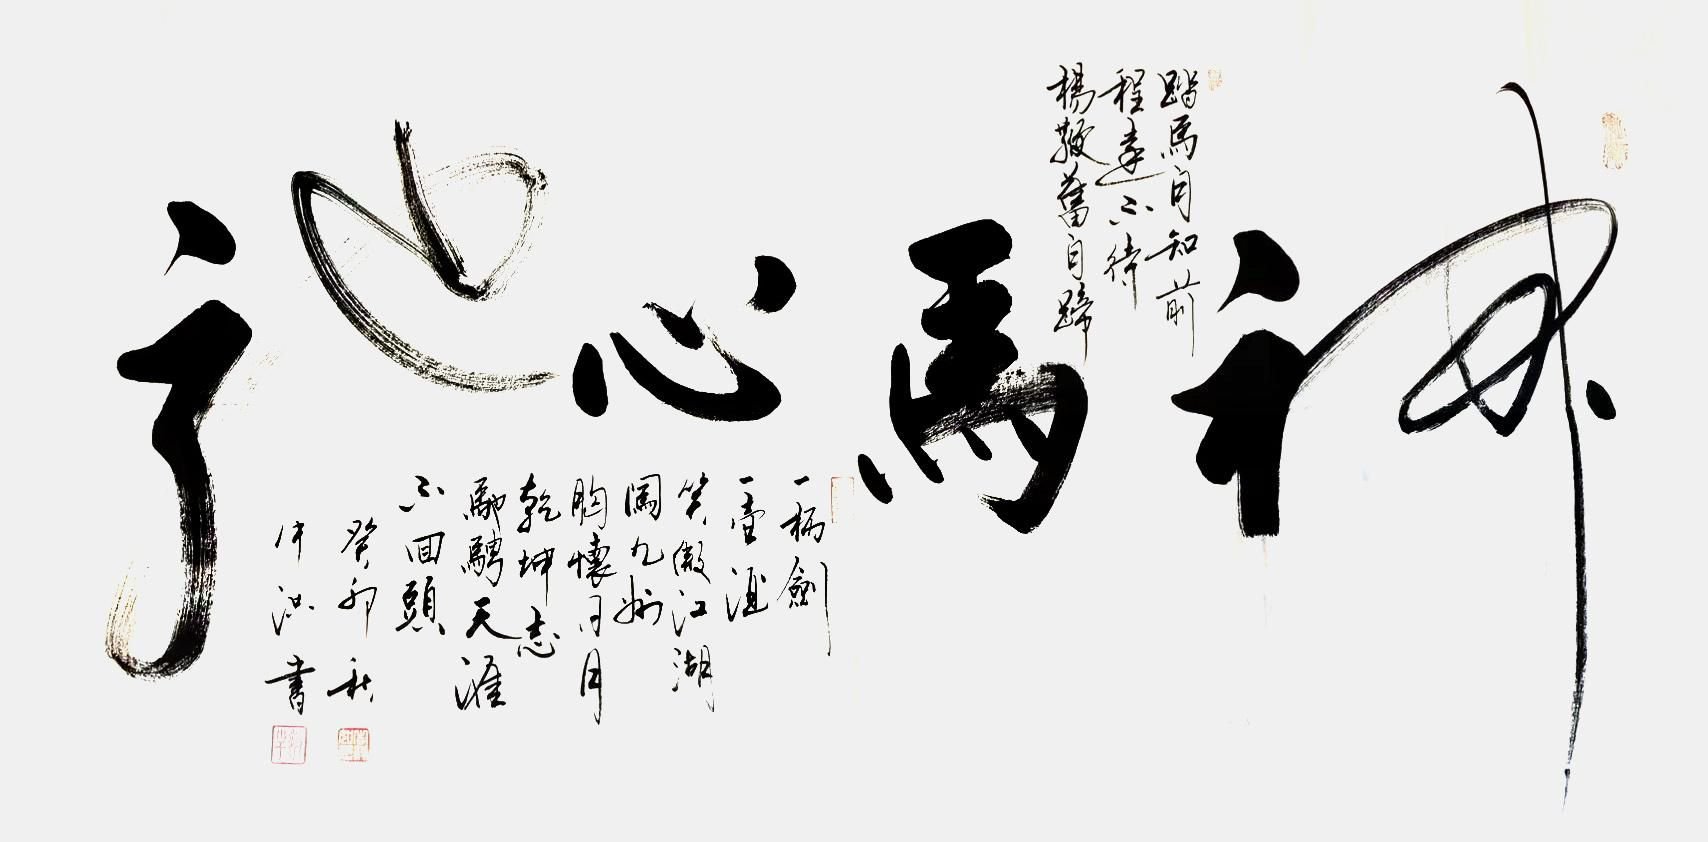 神馬心
踏馬自知前
程遠不待
楊鞭奮自蹄
一柄劍
一壺酒
笑傲江湖
闖九州
胸懷日月
乾坤志
馳騁天涯
不回頭
癸卯秋
書